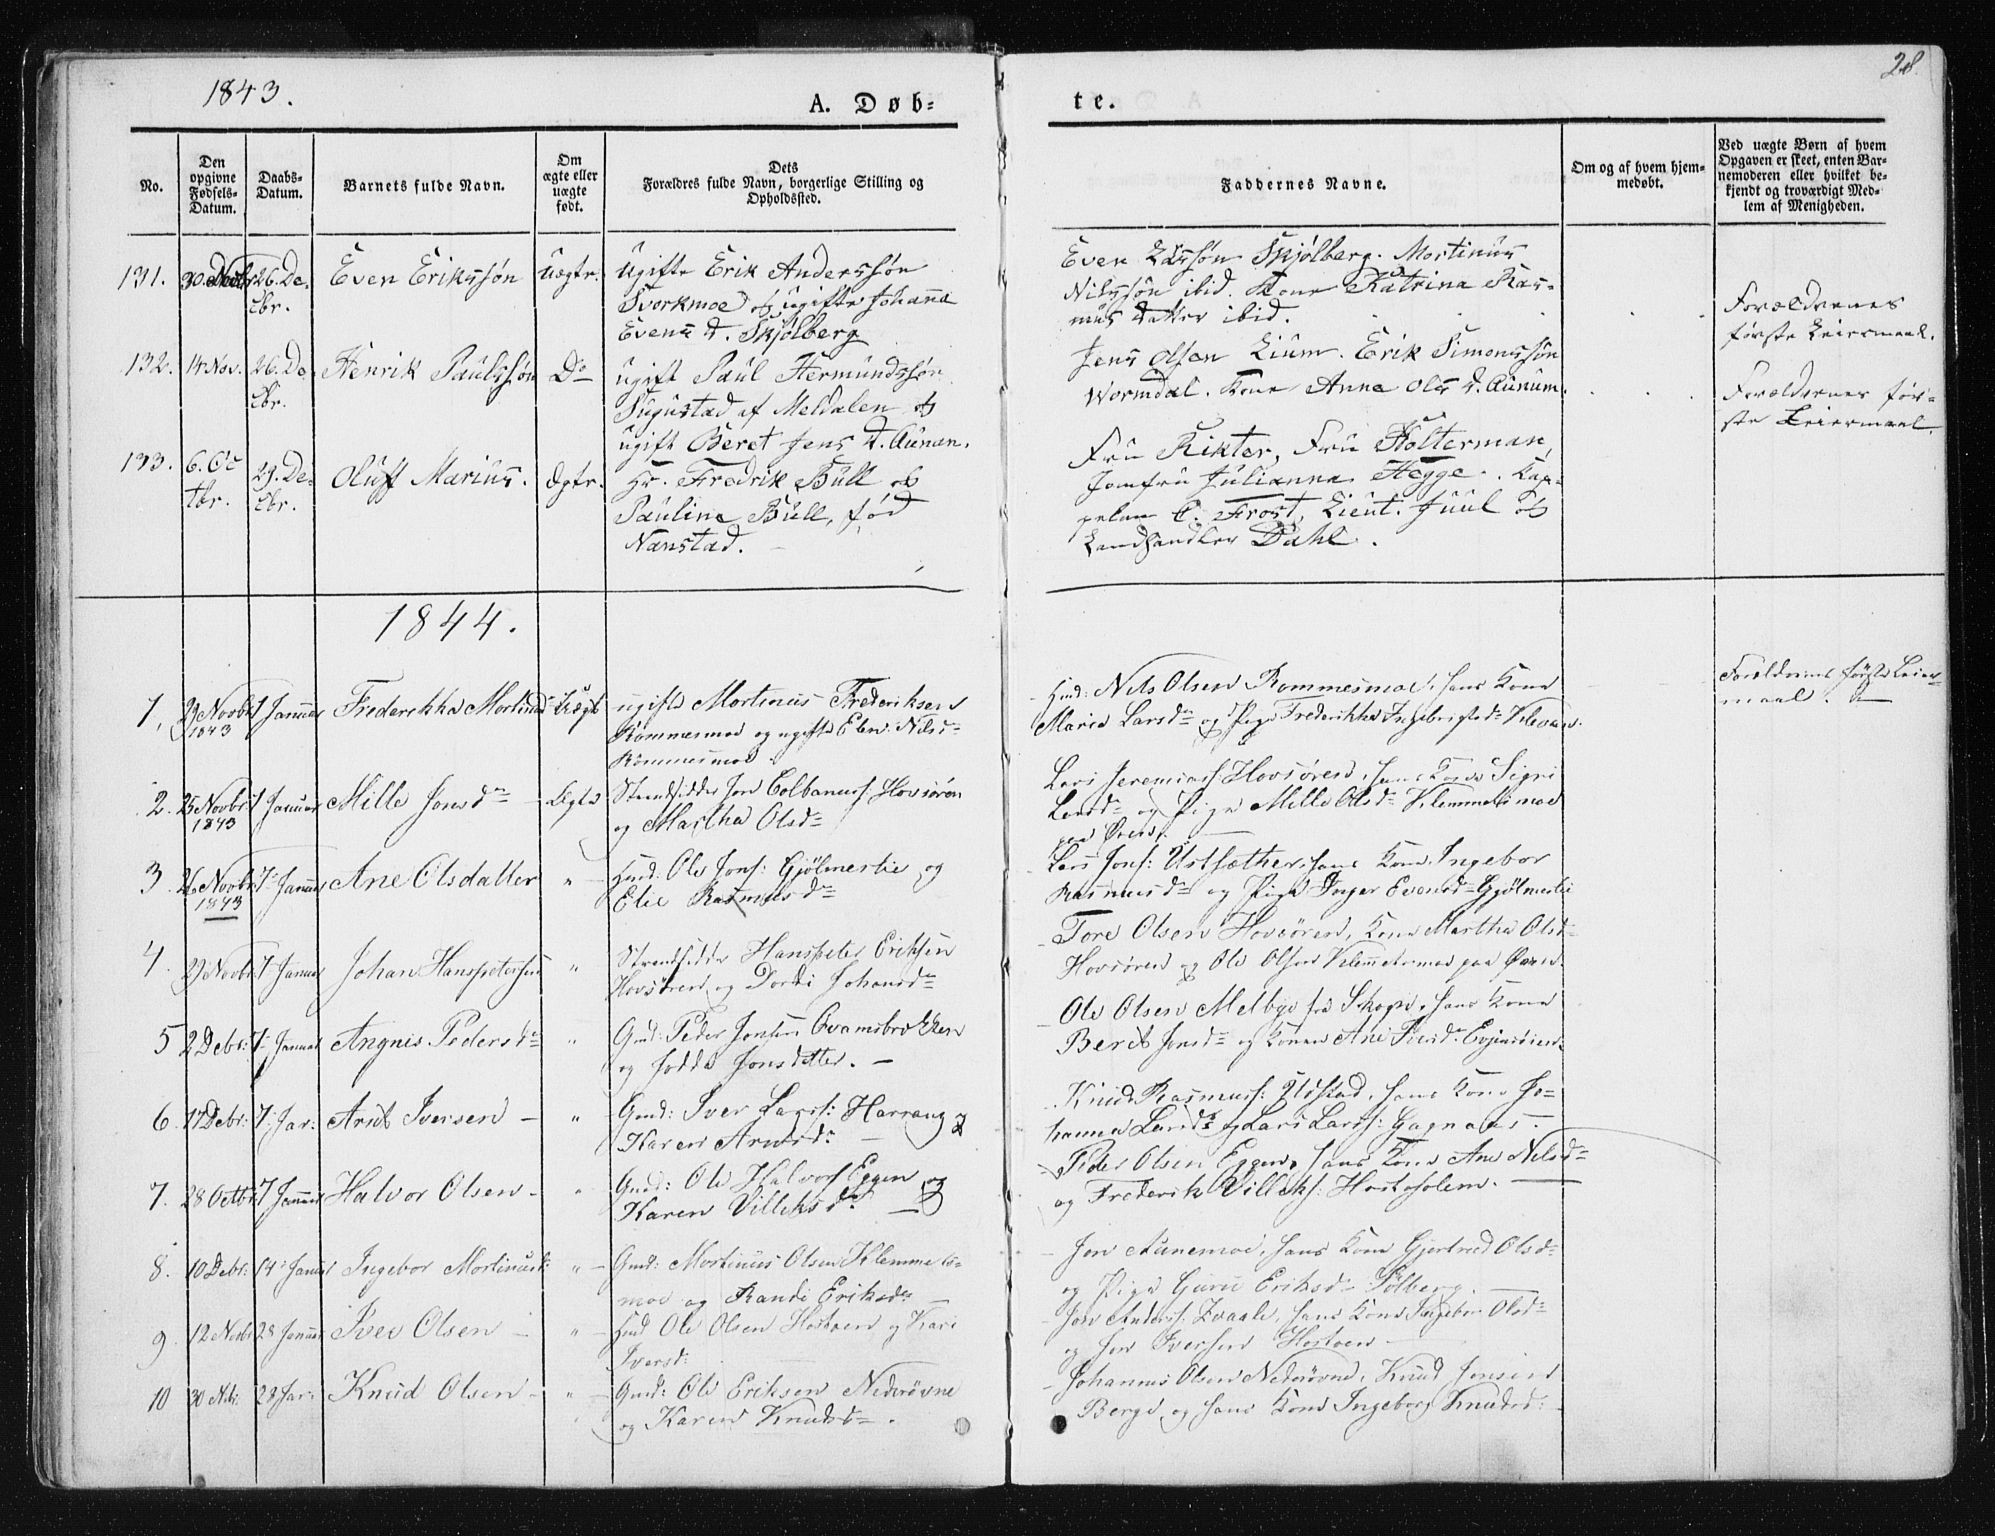 1843.
28.
A. Døb-
te.
No.
Den
opgivne
Fødsels-
Datum.
Daabs-
Datum.
Barnets fulde Navn.
Om
ægte eller
uægte
født.
Dets
Forældres fulde Navn, borgerlige Stilling og
Opholdssted.
Faddernes Navne.
Om og af hvem hjem-
medøbt.
Ved uægte Børn af hvem
Opgaven er skeet, enten Bar-
nemoderen eller hvilket be-
kjendt og troværdigt Med-
lem af Menigheden.
131.
26. De-
cbr.
Even Erikssøn
Uægte.
Ugifte Erik Anderssøn
Svorkmoe og ugifte Johanna
Evens D. Skjølberg
Even Larssøn Skjølberg. Mortinus
Nilssøn ibid. Kone Katrina Ras-
mus Datter ibid.
Forældrenes
første Leiermaal.
132.
14 Nov.
26. De-
cbr.
Henrik Paulssøn
Do
ugift Paul Hermundssøn
Sugustad af Meldalen og
ugift Beret Jens D. Aunan.
Jens Olsen Lium. Erik Simonssøn
Wormdal. Kone Anne Ols D. Aunum.
Forældrenes før-
ste Leiermaal.
133.
6. Oc
tbr.
29. De-
cbr.
Oluff Marius.
Ægte.
Hr. Fredrik Bull og
Pauline Bull, fød
Nanstad.
Fru Rikter, Fru Holterman,
Jomfru Julianna Hegge. Kap-
pelan C. Frost, Lieut. Juul og
Landhandler Dahl.
1844.
1,
29 Novbr
1843
1 Januar
Frederikka Mortinusd
Uægte
ugifte Mortinus Frederiksen
Rommesmoe og ugifte Elen Nilsd
Rommesmoe
Hmd: Nils Olsen Rommesmoe, hans Kone
Maria Larsd og Pige Frederikka Ingebrigtsd
Forældrenes første Leier-
maal.
2.
25 Novbr
1843
1 Januar
Mille Jonsd
Ægte
Strandsidder Jon Colbansens Hovsøren
og Martha Olsd
Lars Jeremias: Hovsøren, hans Kone Signi
Larsd og Pige Mille Olsd Klemmetsmoe
paa Øren
3.
26 Novbr
1843
7 Januar
Ane Olsdatter
"
Hmd: Ole Jons: Gjølmeslie og
Elie Rasmusd
Lars Jons: Ustsæther, hans Kone Ingebor
Rasmusd og Pige Inger Evensd Gjølmeslie
4.
29 Novbr
7 Januar
Johan Hanspetersen
"
Strandsidder Hanspeter Eriksen
Hovsøren og Dordi Johansd
Tore Olsen Hovsøren, Kone Martha Olsd
Hovsøren og Ole Olsen Klemmetsmoe paa Øren
5
2 Debr:
7 Januar
Angnis Pedersd
"
Gmd: Peder Jonsen Qvamsbrekken
og Jonsdatter.
Ole Olsen Melbye fra Skogn, hans Kone
Berit Jonsd og Konen Ane
6.
17 Debr:
7 Jar:
Arnt Iversen
"
Gmd: Iver Lars: Harrang og
Karen Arntsd:
Knud Rasmus: Udstad, hans Kone Jo-
hanna Larsd og Lars Lars: Gagnaas.
7.
28 Octbr
7 Januar
Halvor Olsen
"
Gmd: Ole Halvors Eggen og
Karen Villeksd
Peder Olsen Eggen, hans Kone Ane Nilsd
og Frederik Villeks:
8.
10 Debr:
14 Januar
Ingebor Mortinusd:
"
Gmd: Mortinus Olsen Klemmets-
moe og Randi Eriksd
Jon Aunemoe, hans Kone Gjertrud Olsd
og Pige Guru Eriksd Sølberg.
9.
28 Januar
Iver Olsen
"
Hmd Ole Olsen Hostoen og Kari
Iversd:
Jon Anders: Kvaale, hans Kone Ingebor Olsd
og Jon Iversen Hostoen
10
28 Jar:
Knud Olsen
"
Gmd: Ole Eriksen Nederøvne
og Karen Knudsd.
Johannes Olsen Nederøvne, Knud Jonsen
Berge og hans Kone Ingeborg Knudsd: